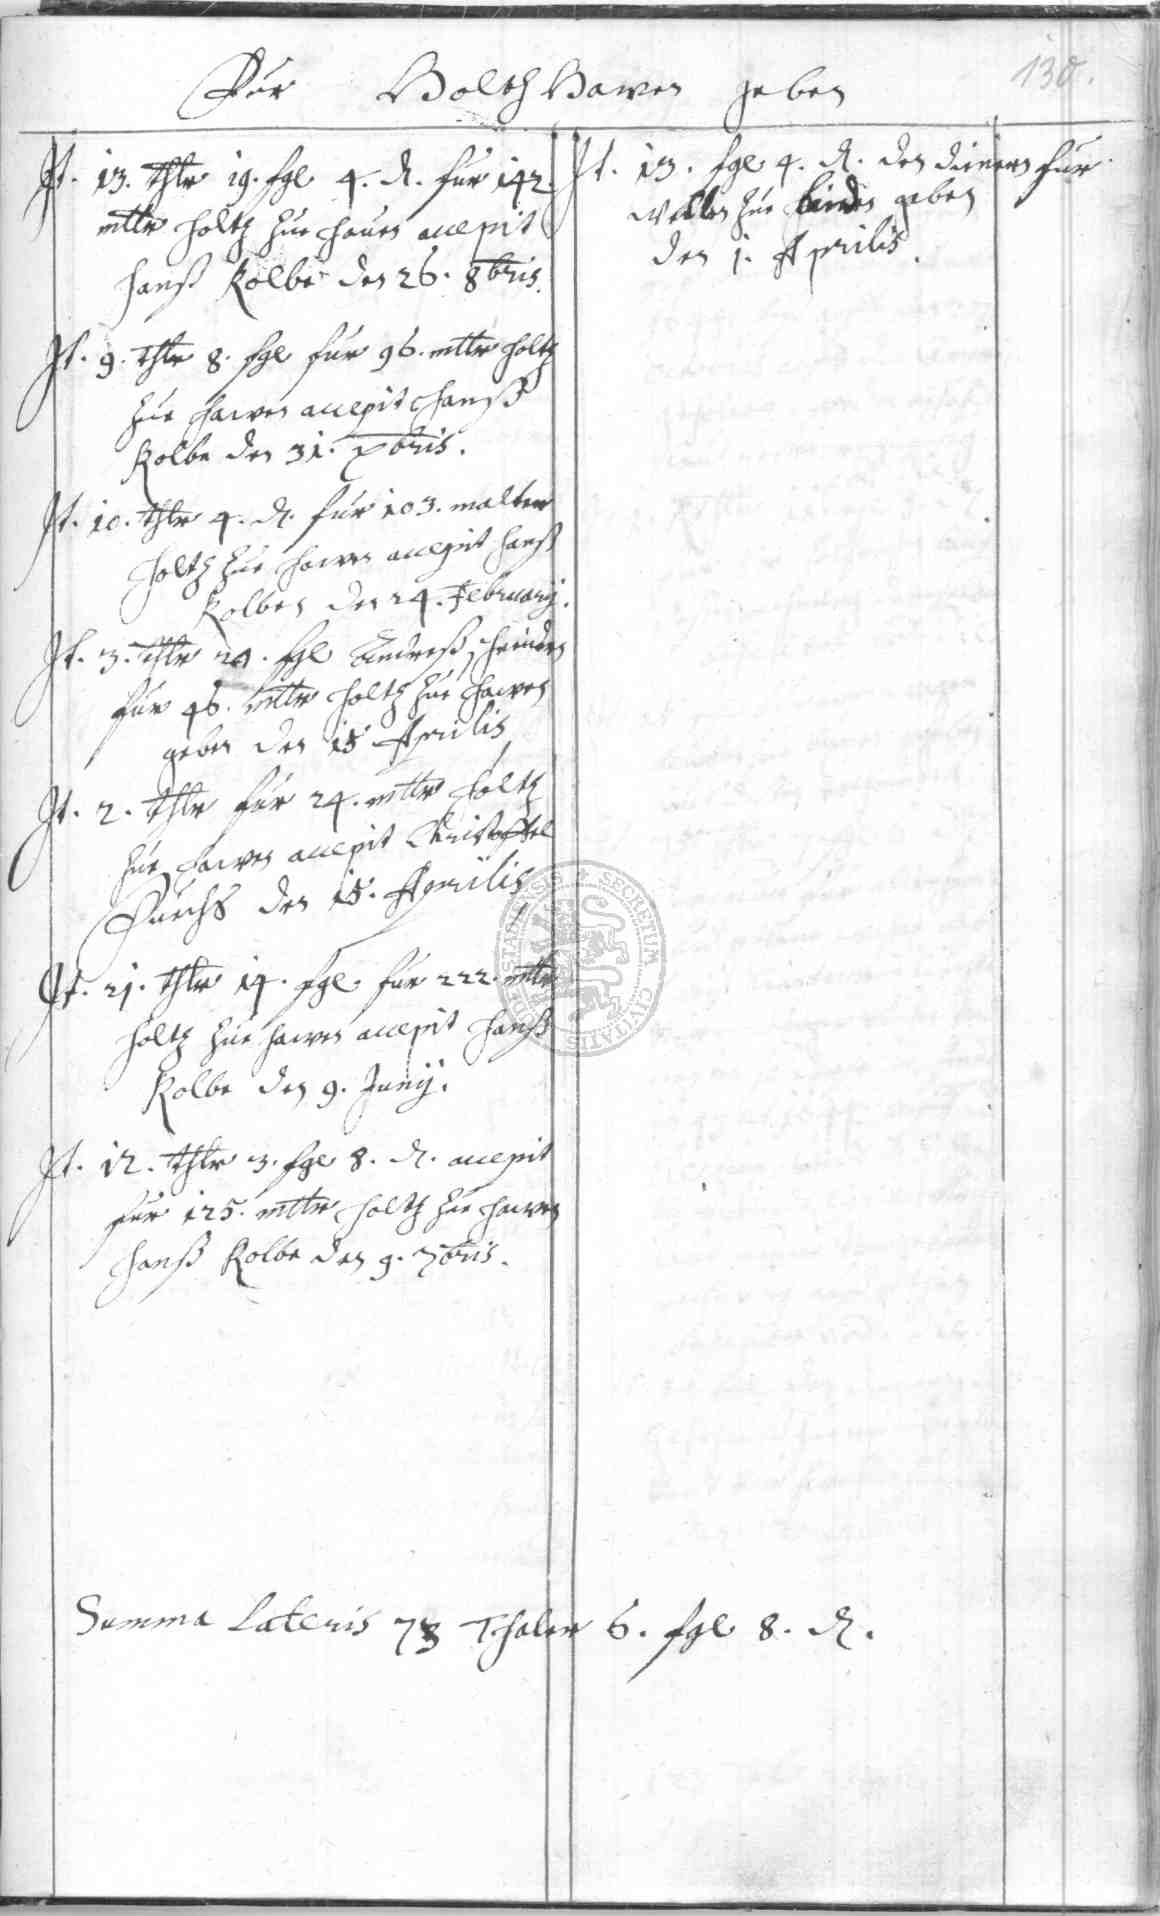 130.
Fur Holtz Hawen geben
It. 13. thlr 19. sgl 4. d. fur 142.
mltr holtz zue hauen accepit
Hanß Kolbe den 26. 8bris.
It. 9. thlr 8. sgl fur 96. mltr holtz
zue hawen accepit Hanß
Kolbe den 31. xbris.
It. 10. thlr 4. d. fur 103. malter
holtz zue hawen accepit Hanß
Kolben den 24. February.
It. 3. thlr 20. sgl Andreß
fur 46. mltr holtz zue hawen
geben den 15 Aprilis
It. 2. thlr fur 24. mltr holtz
zue hawen accepit Christoffel
Fuchs den 15. Aprilis
It. 21. thlr 14. sgl fur 222. mltr
holtz zue hawen accepit Hanß
Kolbe den 9. Junij.
It. 12. thlr 3. sgl 8. d. accepit
fur 125. mltr holtz zue hawen
Hanß Kolbe den 9. 7bris.
It. 13. sgl 4. d. den dienern fur
wellen zue binden geben
den 1. Aprilis.
Summa Lateris 73 Thaler 6. sgl 8. d.
SECRETUM CIVITATIS